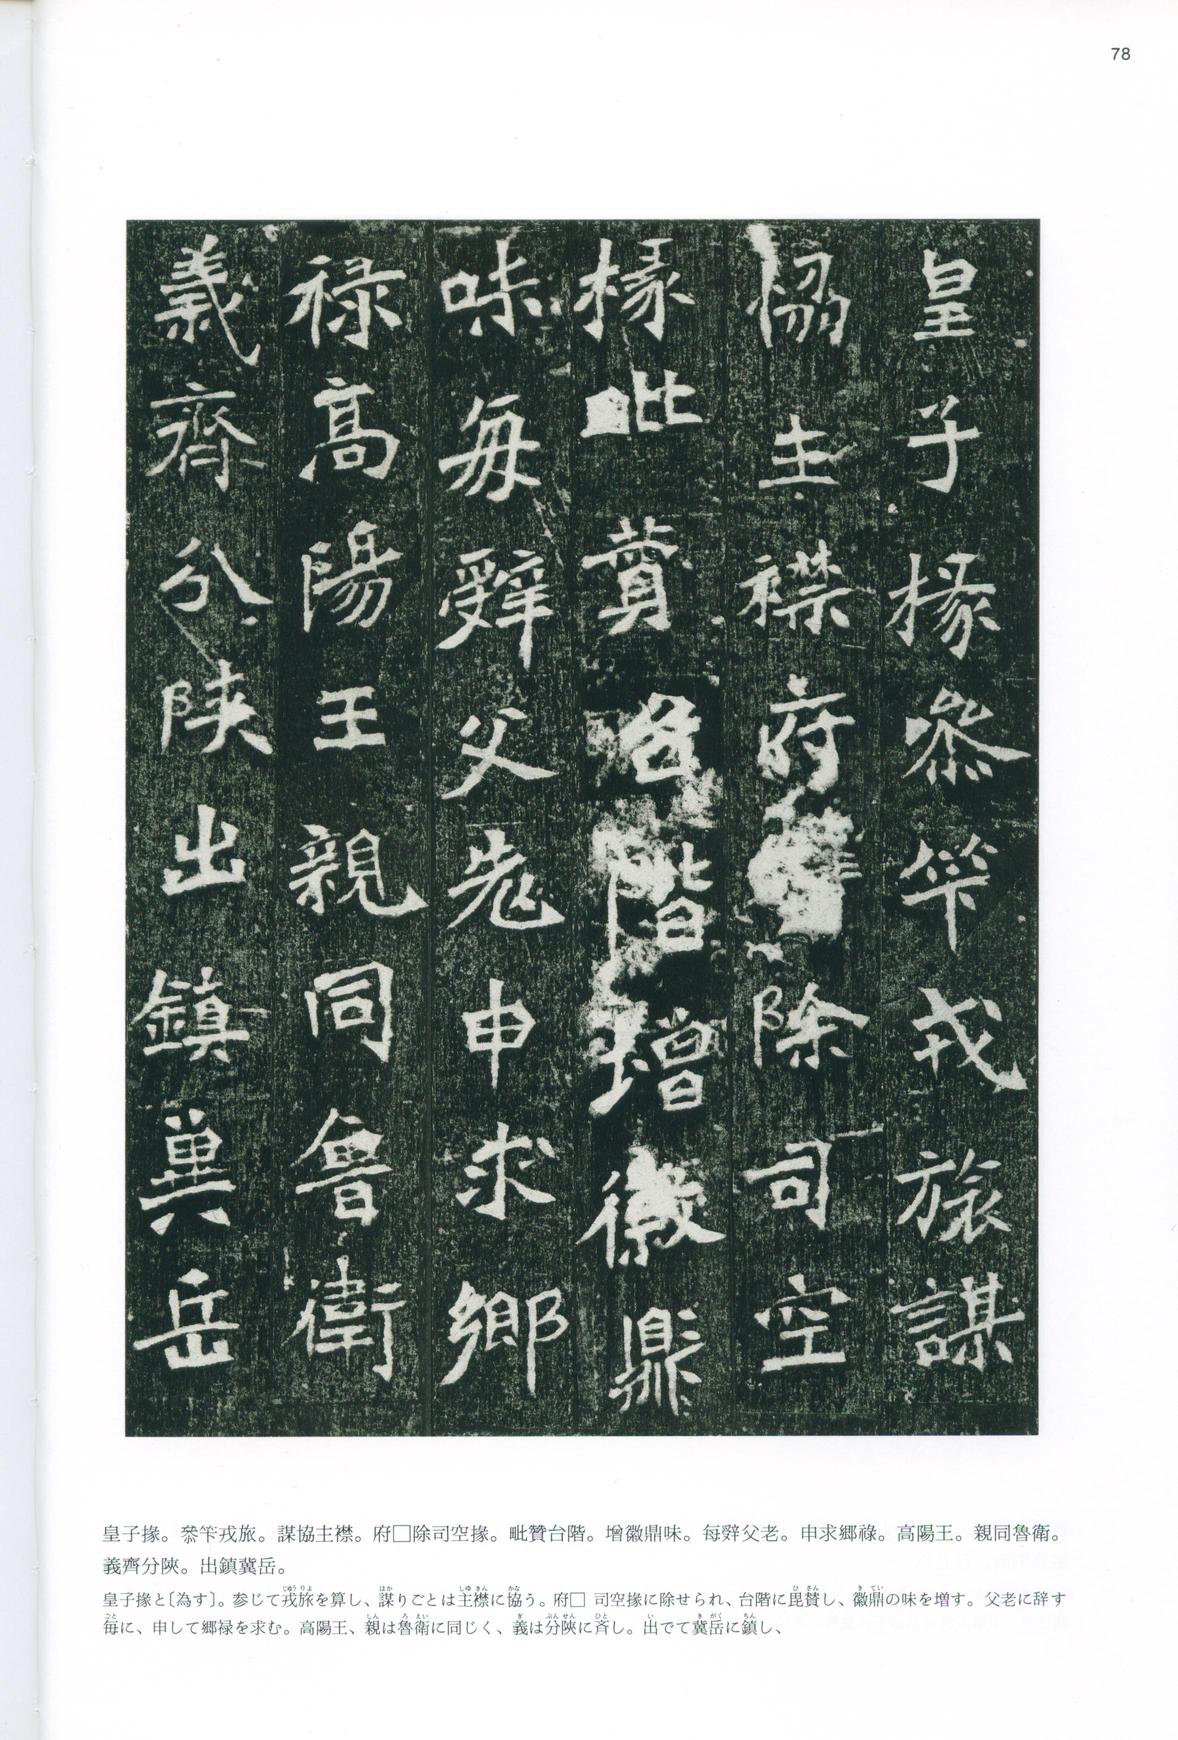 78
皇子掾叅笇戎旅謀
協主襟府除司空
掾毗賛台階増徽鼎
味每辤父老申求鄉
禄高陽王親同魯衛
義齊分陝出鎮冀岳
皇子掾。叅笇戎旅。謀協主襟。府□除司空掾。毗贊台階。增徽鼎味。每辤父老。申求鄉祿。高陽王。親同魯衛。
義齊分陝。出鎮冀岳。
皇子掾と〔為す〕。参じて戎旅を算し、謀りごとは主襟に協う。府□ 司空掾に除せられ、台階に毘賛し、徽鼎の味を増す。父老に辞す
毎に、申して郷禄を求む。高陽王、親は魯衛に同じく、義は分陝に斉し。出でて冀岳に鎮し、